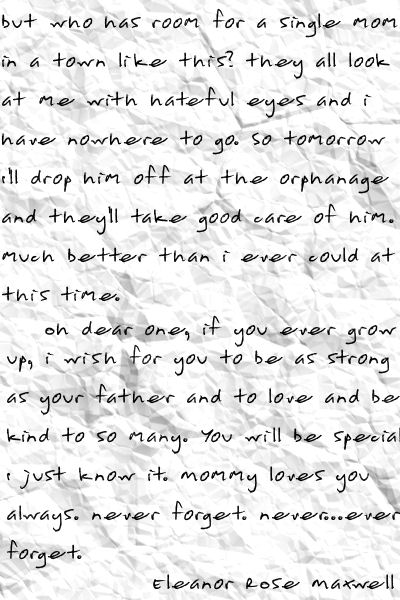 but who has room for a single mom
in a town like this? they all look
at me with hateful eyes and i
have nowhere to go. so tomorrow
i'll drop him off at the orphanage
and they'll take good care of him.
much better than i ever could at
this time.
oh dear one, if you ever grow
up, i wish for you to be as strong
as your father and to love and be
kind to so many. You will be special
i just know it. mommy loves you
always. never forget. never...ever
forget.
Eleanor Rose Maxwell